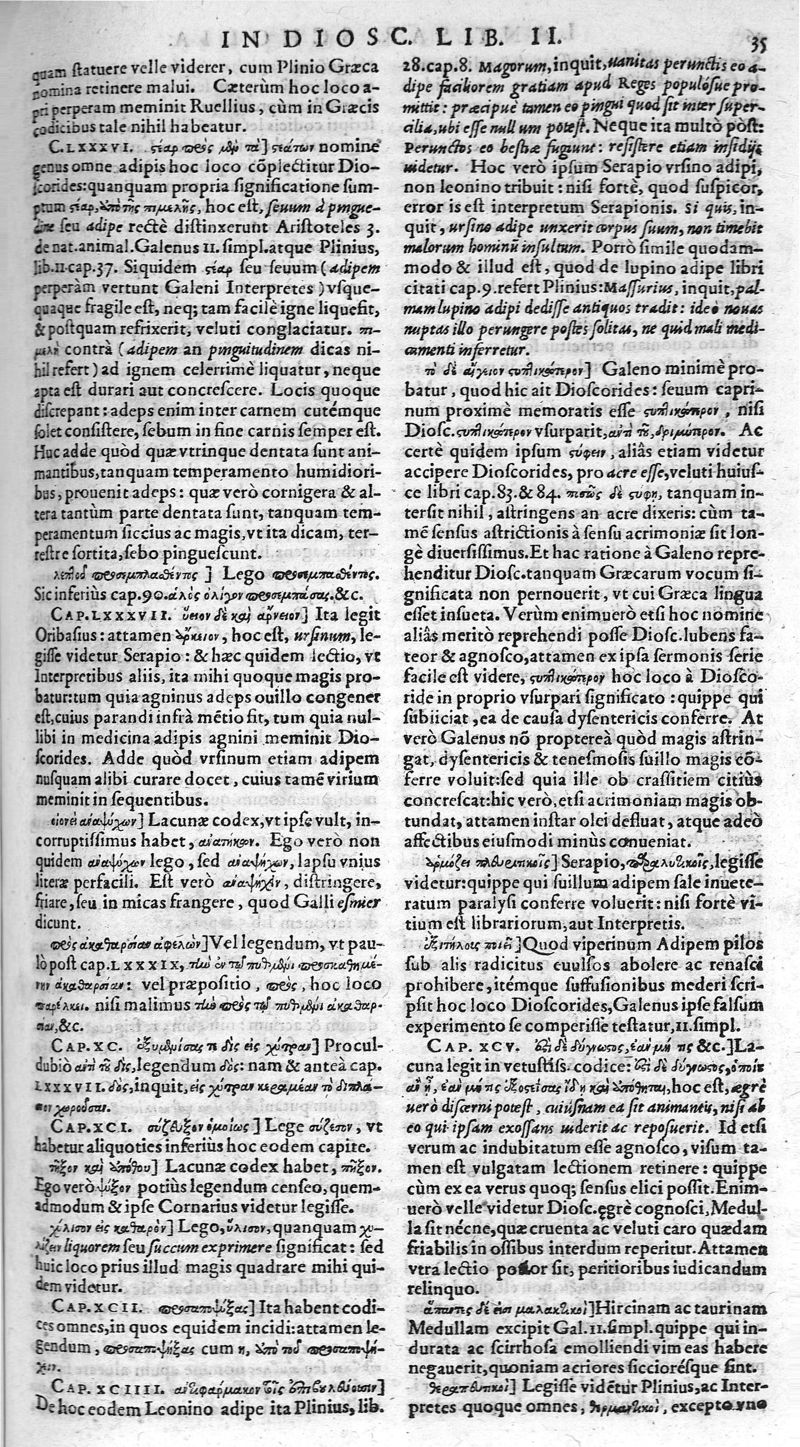 IN DIOSC. LIB. II. 35
quam statuere velle viderer, cum Plinio Græca
nomina retinere malui. Cæterùm hoc loco a-
pri perperam meminit Ruellius, cùm in Græcis
codicibus tale nihil habeatur.
C. LXXXVI. στέαρ πρὸς μὲν τὰ] στεάτων nomine
genus omne adipis hoc loco cōplectitur Dio-
scorides: quanquam propria significatione sum-
ptum στέαρ, ἀπὸ τῆς πιμελῆς, hoc est, seuum à pingue-
dine seu adipe rectè distinxerunt Aristoteles 3.
de nat. animal. Galenus 11. simpl. atque Plinius,
lib. 11. cap. 37. Siquidem στέαρ seu seuum (adipem
perperàm vertunt Galeni Interpretes) vsque-
quaque fragile est, neq; tam facilè igne liquefit,
& postquam refrixerit, veluti conglaciatur. πι-
μελὴ contrà (adipem an pinguitudinem dicas ni-
hil refert) ad ignem celerrimè liquatur, neque
apta est durari aut concrescere. Locis quoque
discrepant: adeps enim inter carnem cutémque
solet consistere, sebum in fine carnis semper est.
Huc adde quòd quæ vtrinque dentata sunt ani-
mantibus, tanquam temperamento humidiori-
bus, prouenit adeps: quæ verò cornigera & al-
tera tantùm parte dentata sunt, tanquam tem-
peramentum siccius ac magis, vt ita dicam, ter-
restre sortita, sebo pinguescunt.
Lego
Sic inferiùs cap. 90. ἁλὸς ὀλίγον &c.
CAP. LXXXVII. ὕειον δὲ καὶ ἄρνειον] Ita legit
Oribasius: attamen ἄρκειον, hoc est, ursinum, le-
gisse videtur Serapio: & hæc quidem lectio, vt
Interpretibus aliis, ita mihi quoque magis pro-
batur: tum quia agninus adeps ouillo congener
est, cuius parandi infrà mētio fit, tum quia nul-
libi in medicina adipis agnini meminit Dio-
scorides. Adde quòd vrsinum etiam adipem
nusquam alibi curare docet, cuius tamē virium
meminit in sequentibus.
Lacunæ codex, vt ipse vult, in-
corruptissimus habet, Ego verò non
quidem ἀναψύχων lego, sed ἀναψήχων, lapsu vnius
literæ perfacili. Est verò ἀναψήχειν, distringere,
friare, seu in micas frangere, quod Galli esmier
dicunt.
πρὸς ἀκαθαρσίαν ἀφελὼν] Vel legendum, vt pau-
lò pòst cap. LXXXIX, τὴν ἐν τῷ πυθμένι
ἀκαθαρσίαν: vel præpositio, πρὸς, hoc loco
παρέλκει. nisi malimus τὴν πρὸς τῷ πυθμένι ἀκαθαρ-
σίαν, &c.
CAP. XC. τι δὶς εἰς χύτραν] Procul-
dubiò ἀντὶ τοῦ δὶς, legendum δός: nam & anteà cap.
LXXXVII. δὸς, inquit, εἰς χύτραν κεραμέαν τὸ διπλά-
σιον χωροῦσαν.
CAP. XCI. σύζευξον ὁμοίως] Lege σύζεσον, vt
habetur aliquoties inferiùs hoc eodem capite.
πῆξον καὶ ἀπόθου] Lacunæ codex habet, πῆξον.
Ego verò ψύξον potiùs legendum censeo, quem-
admodum & ipse Cornarius videtur legisse.
χύλισον εἰς καθαρὸν] Lego, ὕλισον, quanquam χυ-
λίζειν liquorem seu succum exprimere significat: sed
huic loco prius illud magis quadrare mihi qui-
dem videtur.
CAP. XCII. Ita habent codi-
ces omnes, in quos equidem incidi: attamen le-
gendum, cum η, ἀπὸ τοῦ
CAP. XCIIII. ἀντιφάρμακον τοῖς ἐπιβουλεύουσιν]
De hoc eodem Leonino adipe ita Plinius, lib.
28. cap. 8. Magorum, inquit, uanitas perunctis eo a-
dipe faciliorem gratiam apud Reges populósue pro-
mittit: præcipuè tamen eo pingui quod sit inter super-
cilia, ubi esse nullum potest. Neque ita multò pòst:
Perunctos eo bestiæ fugiunt: resistere etiam insidijs
uidetur. Hoc verò ipsum Serapio vrsino adipi,
non leonino tribuit: nisi fortè, quod suspicor,
error is est interpretum Serapionis. Si quis, in-
quit, ursino adipe unxerit corpus suum, non timebit
malorum hominū insultum. Porrò simile quodam-
modo & illud est, quod de lupino adipe libri
citati cap. 9. refert Plinius: Massurius, inquit, pal-
mam lupino adipi dedisse antiquos tradit: ideo nouas
nuptas illo perungere postes solitas, ne quid mali medi-
camenti inferretur.
τὸ δὲ αἴγειον στυπτικώτερον] Galeno minimè pro-
batur, quod hic ait Dioscorides: seuum capri-
num proximè memoratis esse στυπτικώτερον, nisi
Diosc. στυπτικώτερον vsurparit, ἀντὶ τοῦ, δριμύτερον. Ac
certè quidem ipsum στύφειν, aliâs etiam videtur
accipere Dioscorides, pro acre esse, veluti huius-
ce libri cap. 83. & 84. ποσῶς δὲ στύφει, tanquam in-
tersit nihil, astringens an acre dixeris: cùm ta-
mē sensus astrictionis à sensu acrimoniæ sit lon-
gè diuersissimus. Et hac ratione à Galeno repre-
henditur Diosc. tanquam Græcarum vocum si-
gnificata non pernouerit, vt cui Græca lingua
esset insueta. Verùm enimuero etsi hoc nomine
aliâs meritò reprehendi posse Diosc. lubens fa-
teor & agnosco, attamen ex ipsa sermonis serie
facile est videre, στυπτικώτερον hoc loco à Diosco-
ride in proprio vsurpari significato: quippe qui
subiiciat, ea de causa dysentericis conferre. At
verò Galenus nō proptereà quòd magis astrin-
gat, dysentericis & tenesmosis suillo magis cō-
ferre voluit: sed quia ille ob crassitiem citiùs
concrescat: hic verò, etsi acrimoniam magis ob-
tundat, attamen instar olei defluat, atque adeò
affectibus eiusmodi minùs conueniat.
ἁρμόζει πλευριτικοῖς] Serapio, παραλυτικοῖς, legisse
videtur: quippe qui suillum adipem sale inuete-
ratum paralysi conferre voluerit: nisi fortè vi-
tium est librariorum, aut Interpretis.
ἐξιτήλους ποιεῖ] Quod viperinum Adipem pilos
sub alis radicitus euulsos abolere ac renasci
prohibere, itémque suffusionibus mederi scri-
psit hoc loco Dioscorides, Galenus ipse falsum
experimento se comperisse testatur, 11. simpl.
CAP. XCV. ἔστι δὲ δύγνωστος, ἐὰν μή τις &c.] La-
cuna legit in vetustiss. codice: ἔστι δὲ δύγνωστος, ὁποίου
ἂν ᾖ, ἐὰν μή τις ἐξοστεΐσας ἴδῃ καὶ ἀπόθηται, hoc est, ægrè
uerò discerni potest, cuiúsnam ea sit animantis, nisi ab
eo qui ipsam exossans uiderit ac reposuerit. Id etsi
verum ac indubitatum esse agnosco, visum ta-
men est vulgatam lectionem retinere: quippe
cùm ex ea verus quoq; sensus elici possit. Enim-
uerò velle videtur Diosc. ęgrè cognosci, Medul-
la sit nécne, quæ cruenta ac veluti caro quædam
friabilis in ossibus interdum reperitur. Attamen
vtra lectio potior sit, peritioribus iudicandum
relinquo.
ἅπαντες δέ εἰσι μαλακτικοὶ] Hircinam ac taurinam
Medullam excipit Gal. 11. simpl. quippe qui in-
durata ac scirrhosa emolliendi vim eas habere
negauerit, quoniam acriores siccioresque sint.
θεραπευτικοὶ] Legisse vidētur Plinius, ac Inter-
pretes quoque omnes, θερμαντικοὶ, excepto vno